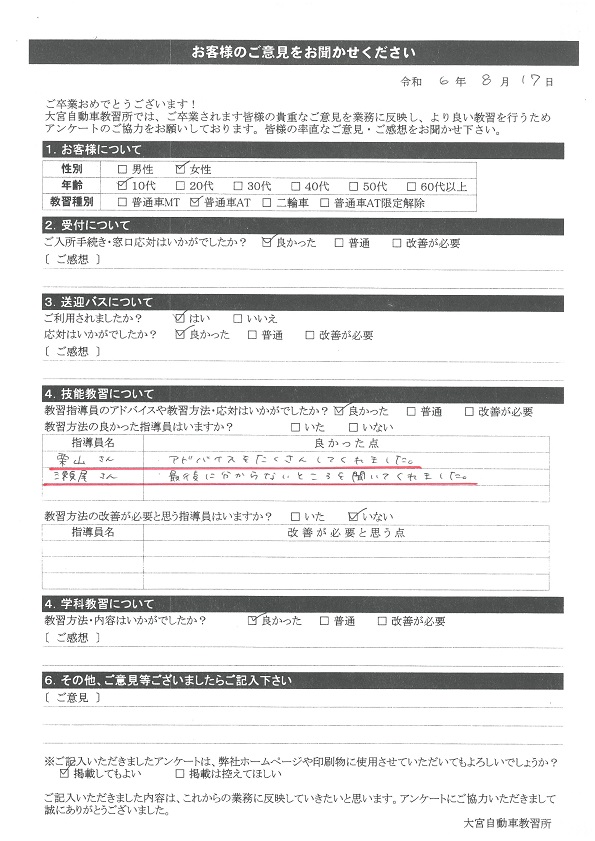 お客様のご意見をお聞かせください
令和 6 年 8 月 17 日
ご卒業おめでとうございます！
大宮自動車教習所では、ご卒業されます皆様の貴重なご意見を業務に反映し、より良い教習を行うため
アンケートのご協力をお願いしております。皆様の率直なご意見・ご感想をお聞かせ下さい。
1. お客様について
性別 □ 男性 ☑ 女性
年齢 ☑ 10代 □ 20代 □ 30代 □ 40代 □ 50代 □ 60代以上
教習種別 □ 普通車MT ☑ 普通車AT □ 二輪車 □ 普通車AT限定解除
2. 受付について
ご入所手続き・窓口応対はいかがでしたか？ ☑ 良かった □ 普通 □ 改善が必要
[ ご感想 ]
3. 送迎バスについて
ご利用されましたか？ ☑ はい □ いいえ
応対はいかがでしたか？ ☑ 良かった □ 普通 □ 改善が必要
[ ご感想 ]
4. 技能教習について
教習指導員のアドバイスや教習方法・応対はいかがでしたか？ ☑ 良かった □ 普通 □ 改善が必要
教習方法の良かった指導員はいますか？ □ いた □ いない
指導員名 良かった点
栗山 さん ・アドバイスをたくさんしてくれました。
瀬尾 さん ・最後に分からないところを聞いてくれました。
教習方法の改善が必要と思う指導員はいますか？ □ いた ☑ いない
指導員名 改善が必要と思う点
4. 学科教習について
教習方法・内容はいかがでしたか？ ☑ 良かった □ 普通 □ 改善が必要
[ ご感想 ]
6. その他、ご意見等ございましたらご記入下さい
[ ご意見 ]
※ご記入いただきましたアンケートは、弊社ホームページや印刷物に使用させていただいてもよろしいでしょうか？
☑ 掲載してもよい □ 掲載は控えてほしい
ご記入いただきました内容は、これからの業務に反映していきたいと思います。アンケートにご協力いただきまして
誠にありがとうございました。
大宮自動車教習所